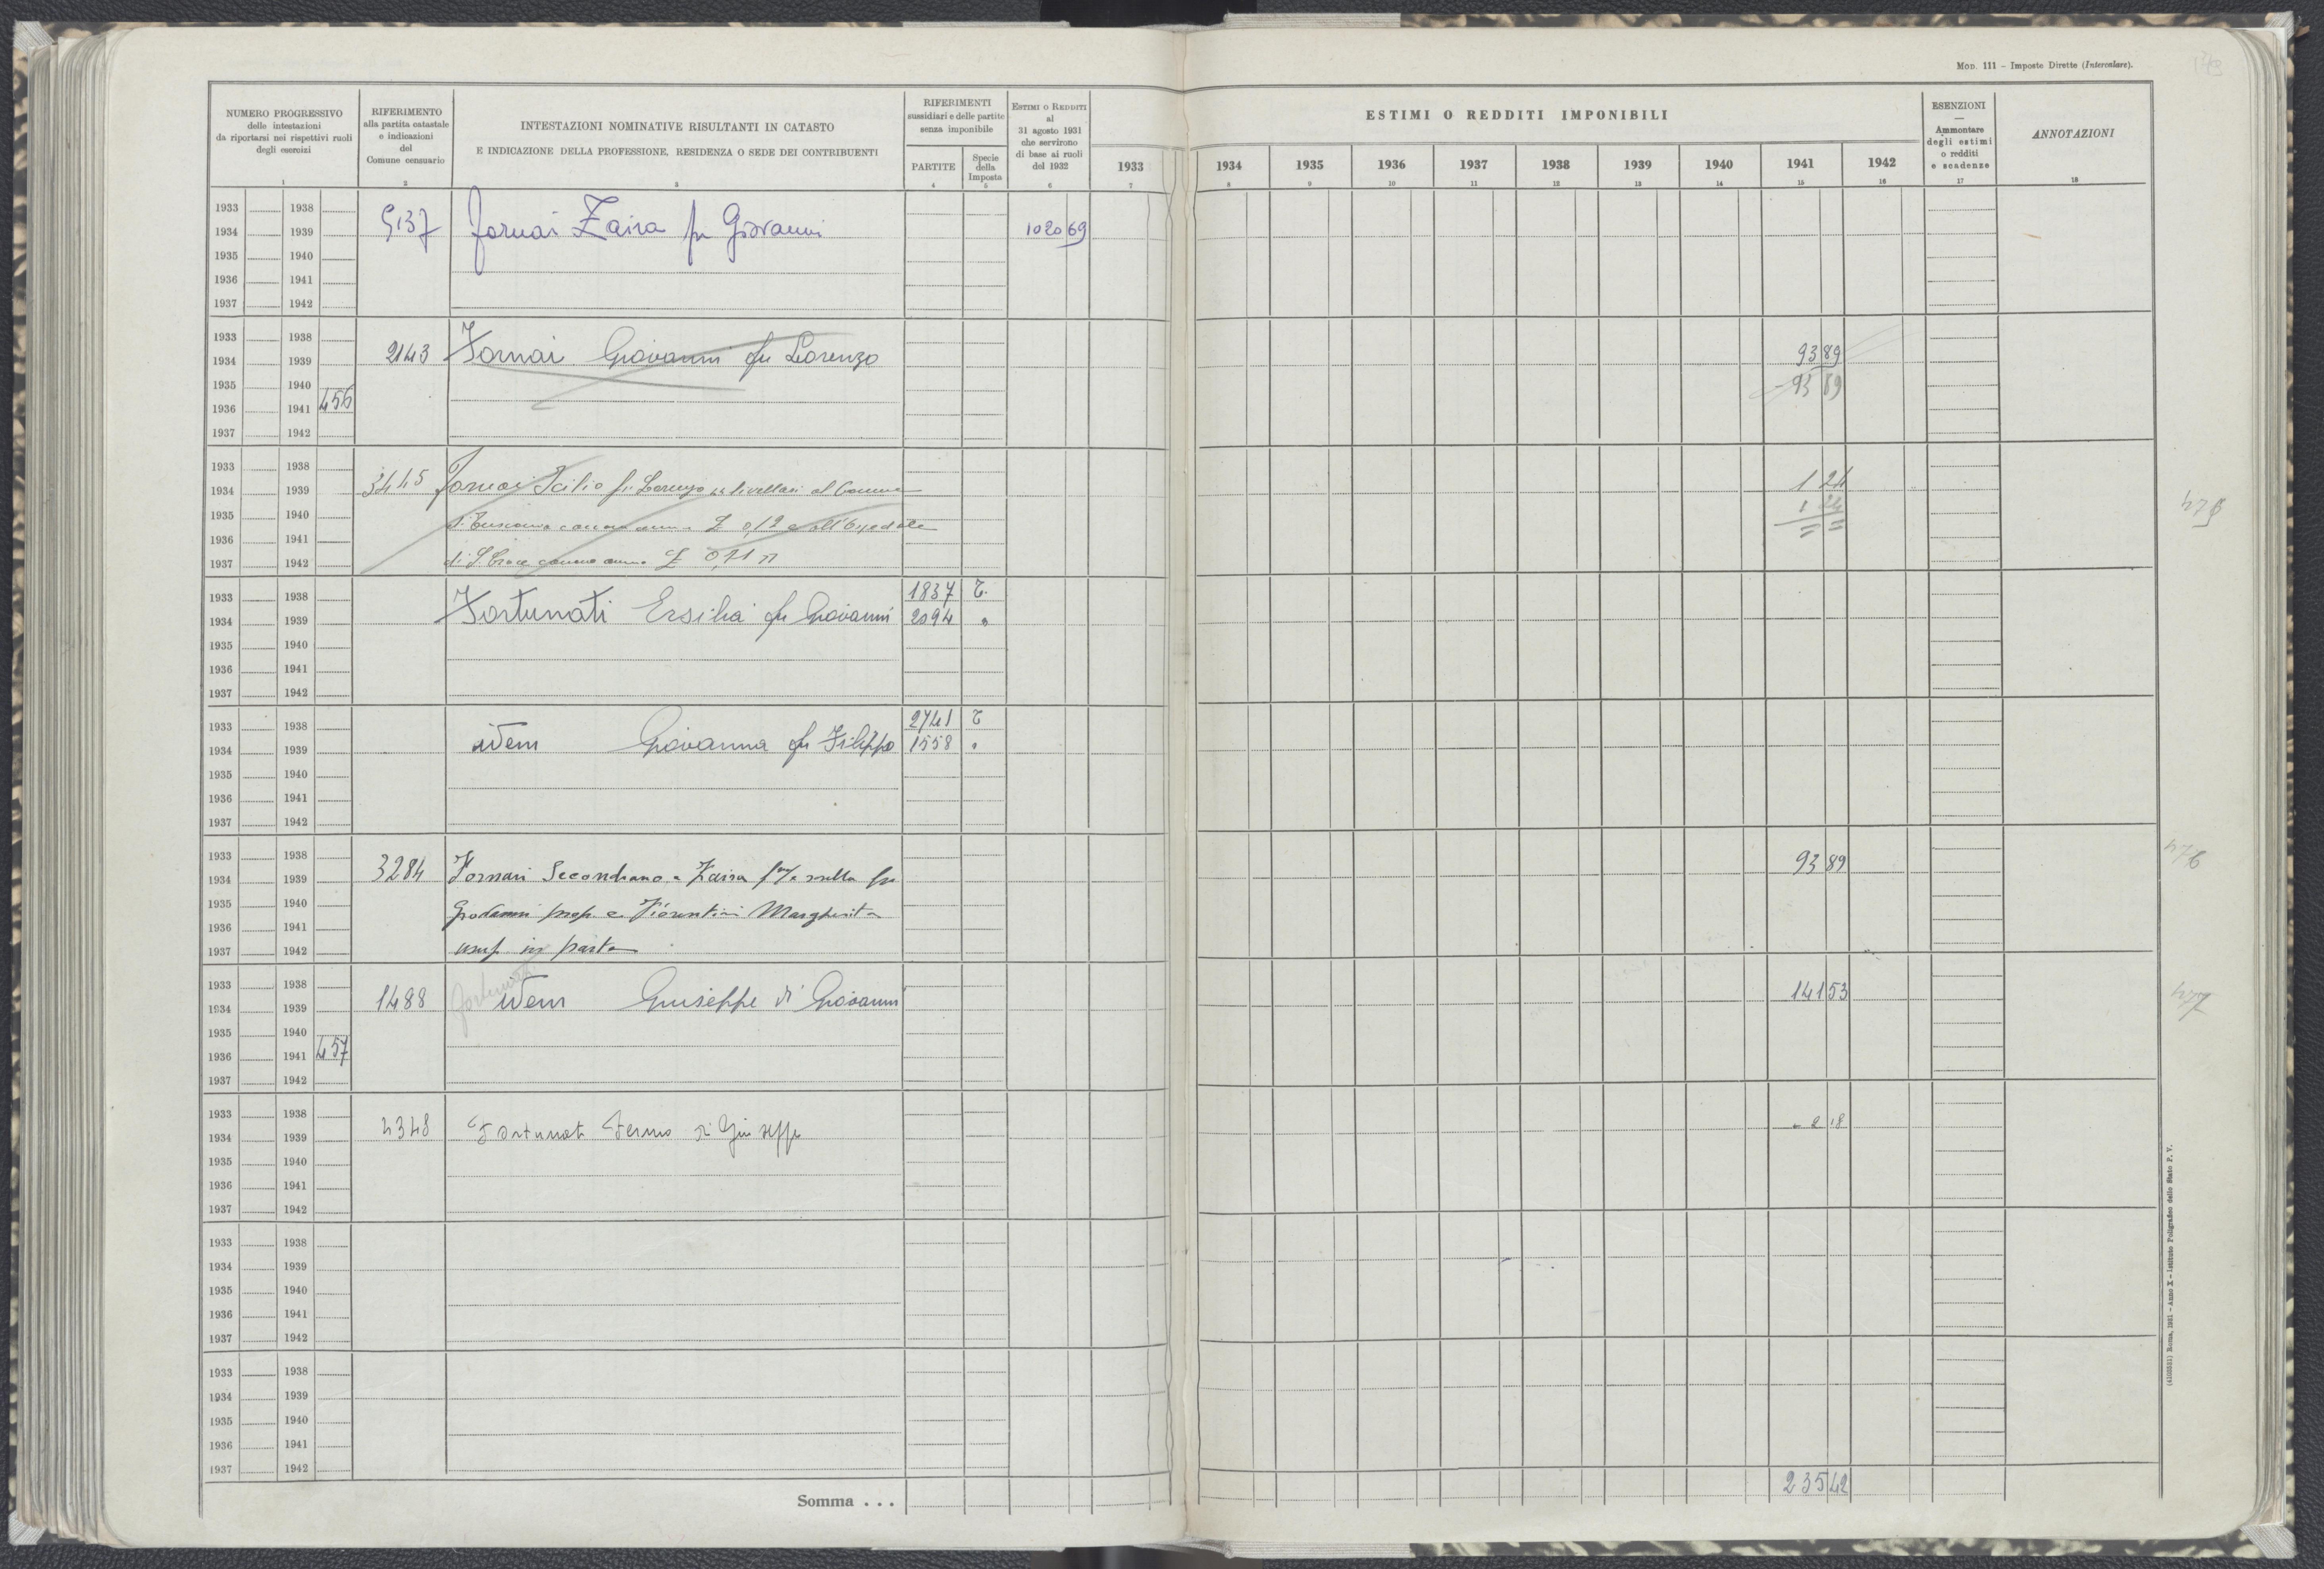 MOD. 111 – Imposte Dirette (Intercalare).
NUMERO PROGRESSIVO
delle intestazioni
da riportarsi nei rispettivi ruoli
degli esercizi
RIFERIMENTO
alla partita catastale
e indicazioni
del
Comune censuario
INTESTAZIONI NOMINATIVE RISULTANTI IN CATASTO
E INDICAZIONE DELLA PROFESSIONE, RESIDENZA O SEDE DEI CONTRIBUENTI
RIFERIMENTI
sussidiari e delle partite
senza imponibile
PARTITE
Specie
della
Imposta
ESTIMI O REDDITI
al
31 agosto 1931
che servirono
di base ai ruoli
del 1932
ESTIMI O REDDITI IMPONIBILI
1933 1934 1935 1936 1937 1938 1939 1940 1941 1942
ESENZIONI
—
Ammontare
degli estimi
o redditi
e scadenze
ANNOTAZIONI
1 2 3 4 5 6 7 8 9 10 11 12 13 14 15 16 17 18
1933 1938
1934 1939 5137 Fornai Zaira fu Giovanni 1020 69
1935 1940
1936 1941
1937 1942
1933 1938
1934 1939 2143 Fornai Giovanni fu Lorenzo 93 89
1935 1940 93 89
1936 1941 456
1937 1942
1933 1938
1934 1939 3445 Fornai Icilio fu Lorenzo livellari al Comune 1 24
1935 1940 £ 0,12 1 24
1936 1941
1937 1942 di S. Croce canone annuo £ 0,11
1933 1938 1837 T.
1934 1939 Fortunati Ersilia fu Giovanni 2094 "
1935 1940
1936 1941
1937 1942
1933 1938 2741 T
1934 1939 idem Giovanna fu Filippo 1558 "
1935 1940
1936 1941
1937 1942
1933 1938 93 89
1934 1939 3284 Fornari Secondiano e Zaira fu
1935 1940 Giovanni prop. e Fiorentini Margherita
1936 1941
1937 1942 usuf in parte
1933 1938 Fortunati
1934 1939 1488 idem Giuseppe di Giovanni 141 53
1935 1940
1936 1941 457
1937 1942
1933 1938
1934 1939 4348 Fortunati Fermo di Giuseppe 2 18
1935 1940
1936 1941
1937 1942
1933 1938
1934 1939
1935 1940
1936 1941
1937 1942
1933 1938
1934 1939
1935 1940
1936 1941
1937 1942
Somma . . . 235 42
(4100351) Roma, 1931 – Anno X – Istituto Poligrafico dello Stato P. V.